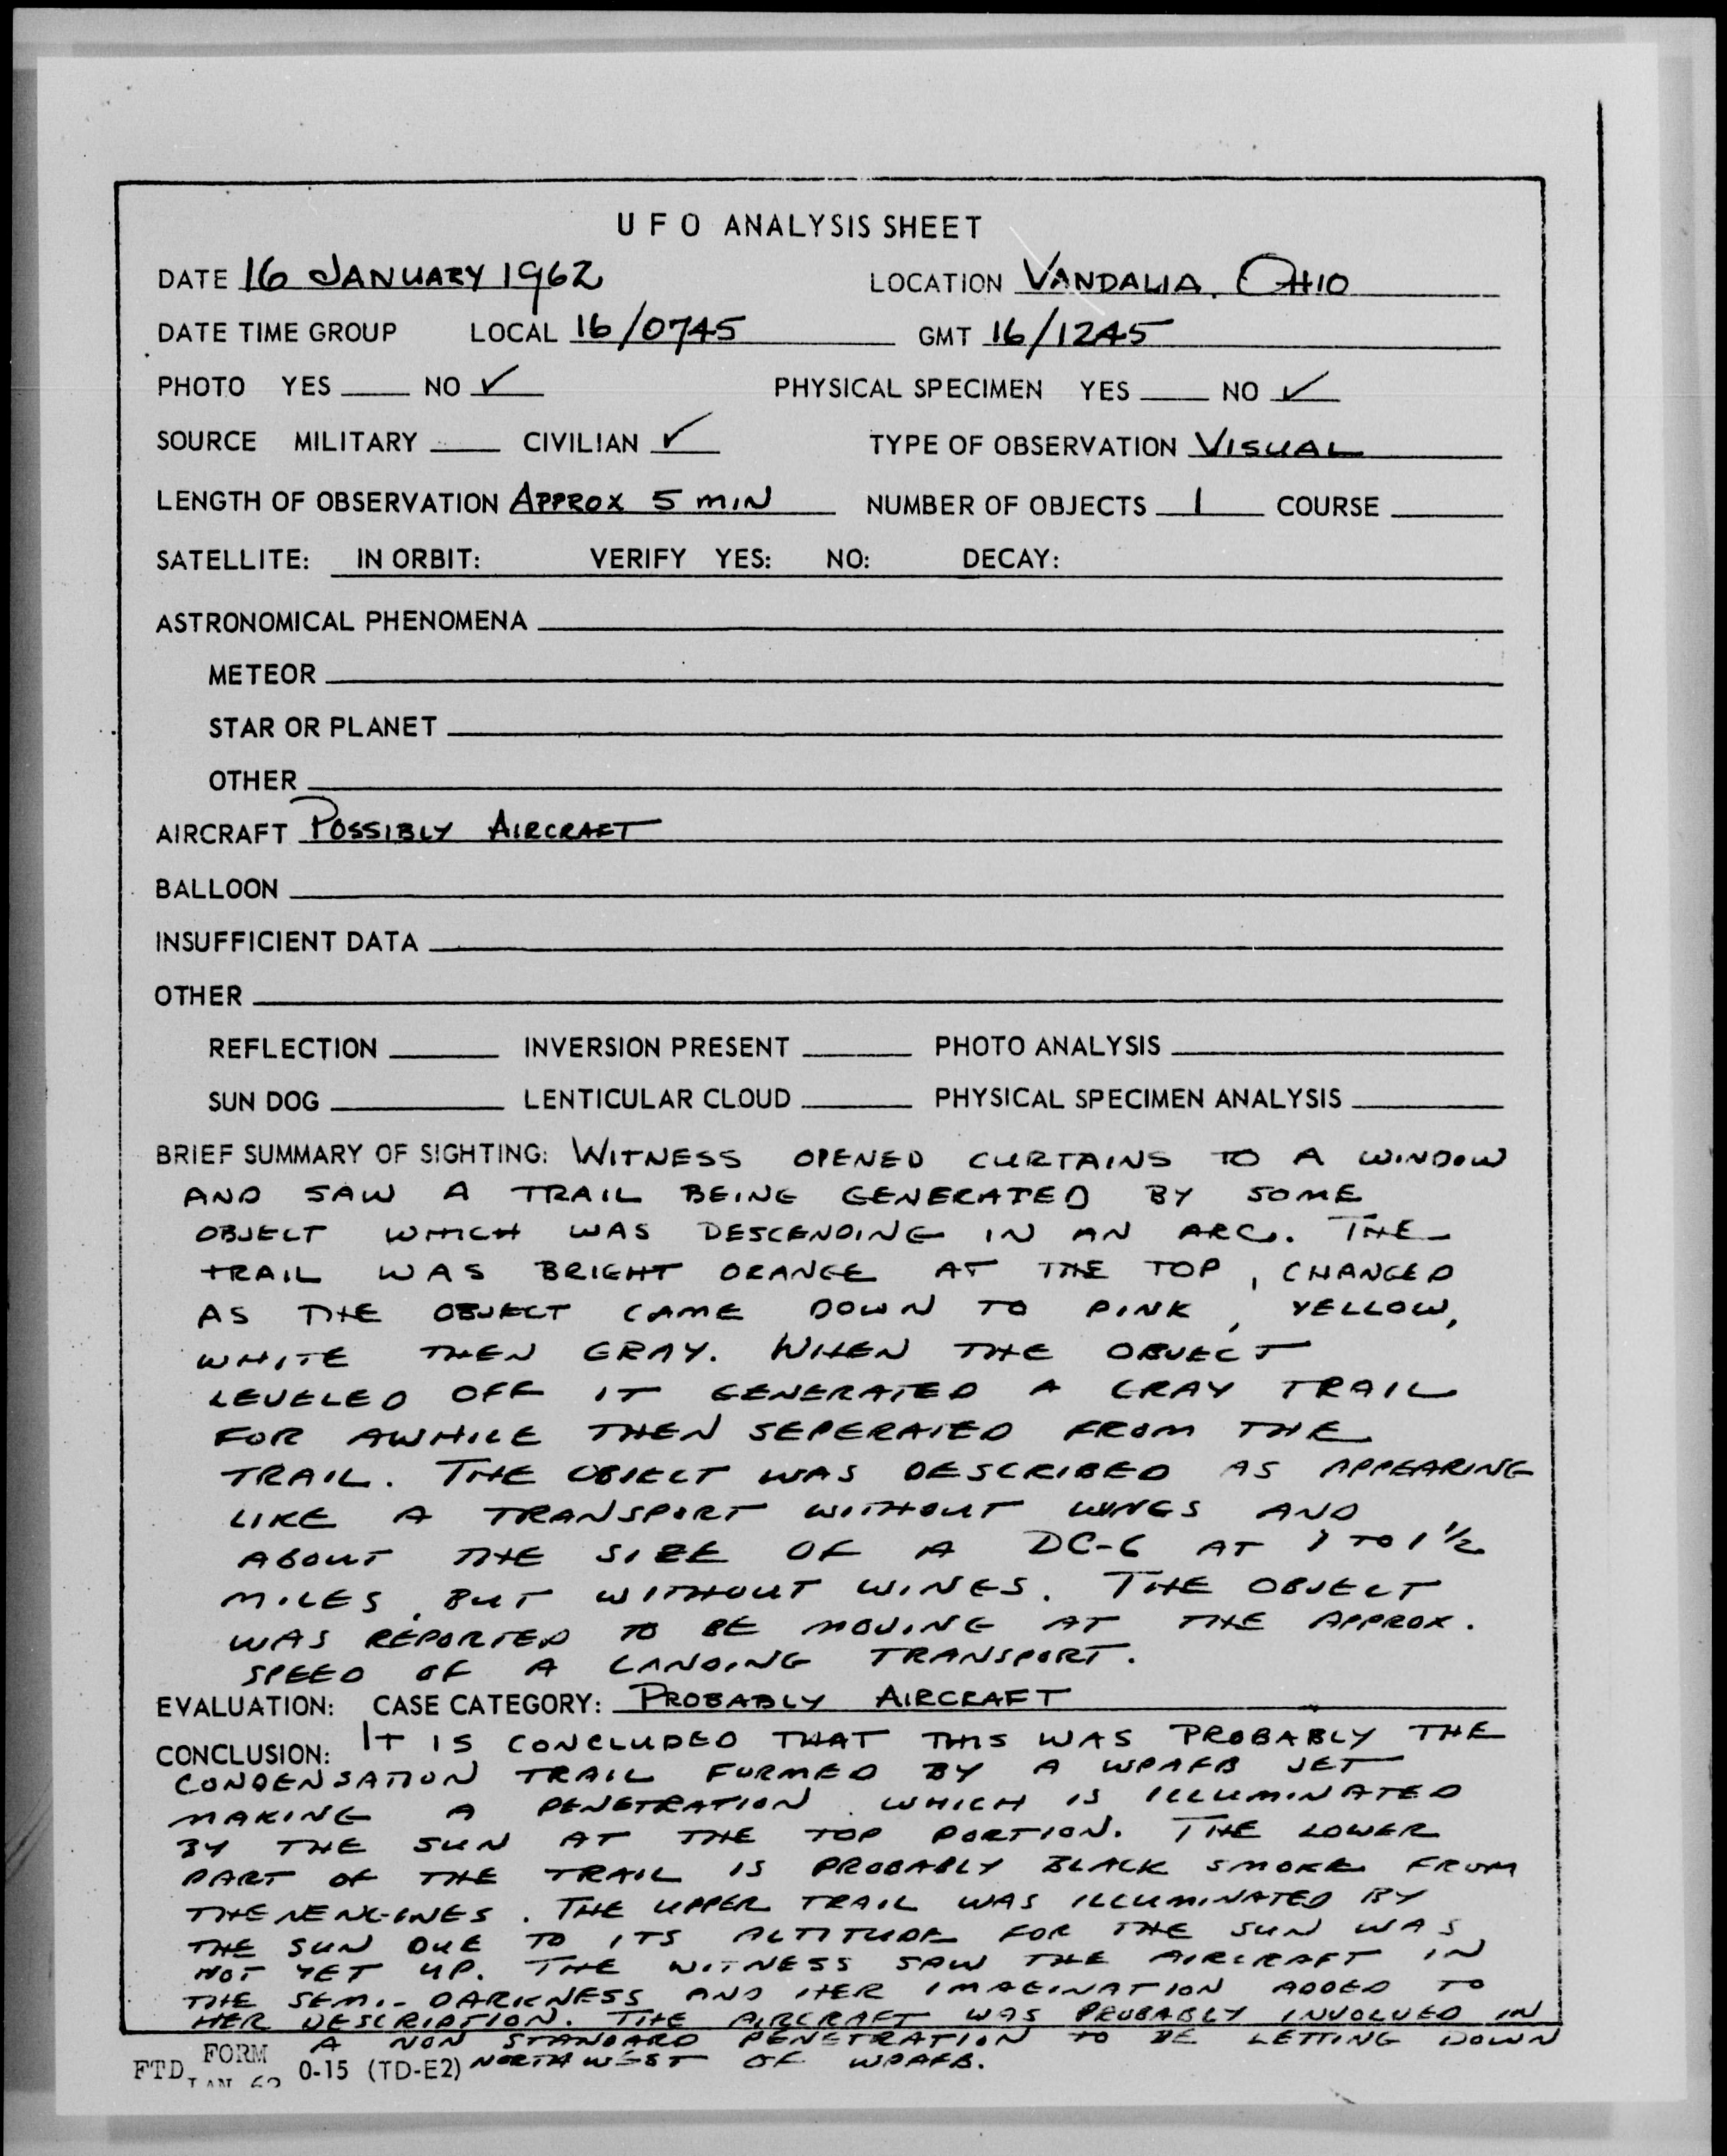 UFO ANALYSIS SHEET
DATE 16 JANUARY 1962 LOCATION VANDALIA, OHIO
DATE TIME GROUP LOCAL 16/0745 GMT 16/1245
PHOTO YES NO ✓ PHYSICAL SPECIMEN YES NO ✓
SOURCE MILITARY CIVILIAN ✓ TYPE OF OBSERVATION VISUAL
LENGTH OF OBSERVATION APPROX 5 MIN NUMBER OF OBJECTS 1 COURSE
SATELLITE: IN ORBIT: VERIFY YES: NO: DECAY:
ASTRONOMICAL PHENOMENA
METEOR
STAR OR PLANET
OTHER
AIRCRAFT POSSIBLY AIRCRAFT
BALLOON
INSUFFICIENT DATA
OTHER
REFLECTION INVERSION PRESENT PHOTO ANALYSIS
SUN DOG LENTICULAR CLOUD PHYSICAL SPECIMEN ANALYSIS
BRIEF SUMMARY OF SIGHTING: WITNESS OPENED CURTAINS TO A WINDOW
AND SAW A TRAIL BEING GENERATED BY SOME
OBJECT WHICH WAS DESCENDING IN AN ARC. THE
TRAIL WAS BRIGHT ORANGE AT THE TOP, CHANGED
AS THE OBJECT CAME DOWN TO PINK, YELLOW,
WHITE THEN GRAY. WHEN THE OBJECT
LEVELED OFF IT GENERATED A GRAY TRAIL
FOR AWHILE THEN SEPERATED FROM THE
TRAIL. THE OBJECT WAS DESCRIBED AS APPEARING
LIKE A TRANSPORT WITHOUT WINGS AND
ABOUT THE SIZE OF A DC-6 AT 1 TO 1½
MILES, BUT WITHOUT WINGS. THE OBJECT
WAS REPORTED TO BE MOVING AT THE APPROX.
SPEED OF A LANDING TRANSPORT.
EVALUATION: CASE CATEGORY: PROBABLY AIRCRAFT
CONCLUSION: IT IS CONCLUDED THAT THIS WAS PROBABLY THE
CONDENSATION TRAIL FORMED BY A WPAFB JET
MAKING A PENETRATION, WHICH IS ILLUMINATED
BY THE SUN AT THE TOP PORTION. THE LOWER
PART OF THE TRAIL IS PROBABLY BLACK SMOKE FROM
THE ENGINES. THE UPPER TRAIL WAS ILLUMINATED BY
THE SUN DUE TO ITS ALTITUDE FOR THE SUN WAS
NOT YET UP. THE WITNESS SAW THE AIRCRAFT IN
THE SEMI-DARKNESS AND HER IMAGINATION ADDED TO
HER DESCRIPTION. THE AIRCRAFT WAS PROBABLY INVOLVED IN
A NON STANDARD PENETRATION TO BE LETTING DOWN
NORTHWEST OF WPAFB.
FTD FORM JAN 62 0-15 (TD-E2)